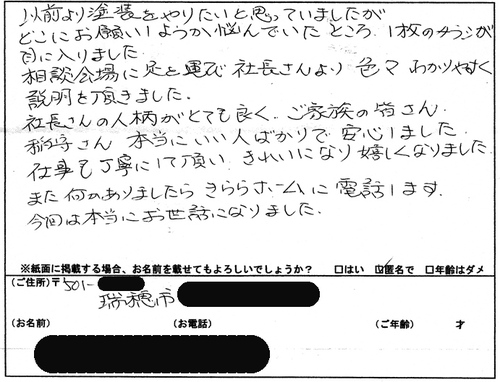 以前より塗装をやりたいと思っていましたが
どこにお願いしようか悩んでいたところ、1枚のチラシが
目に入りました
相談会場に足を運び 社長さんより 色々わかりやすく
説明を頂きました。
社長さんの人柄がとても良く、ご家族の皆さん
さん 本当にいい人ばかりで 安心しました
仕事も丁寧にして頂い きれいになり嬉しくなりました
また何かありましたら きららホームに 電話します。
今回は本当にお世話になりました。
※紙面に掲載する場合、お名前を載せてもよろしいでしょうか? □はい ☑匿名で □年齢はダメ
(ご住所)〒501-
瑞穂市
(お名前) (お電話) (ご年齢) 才